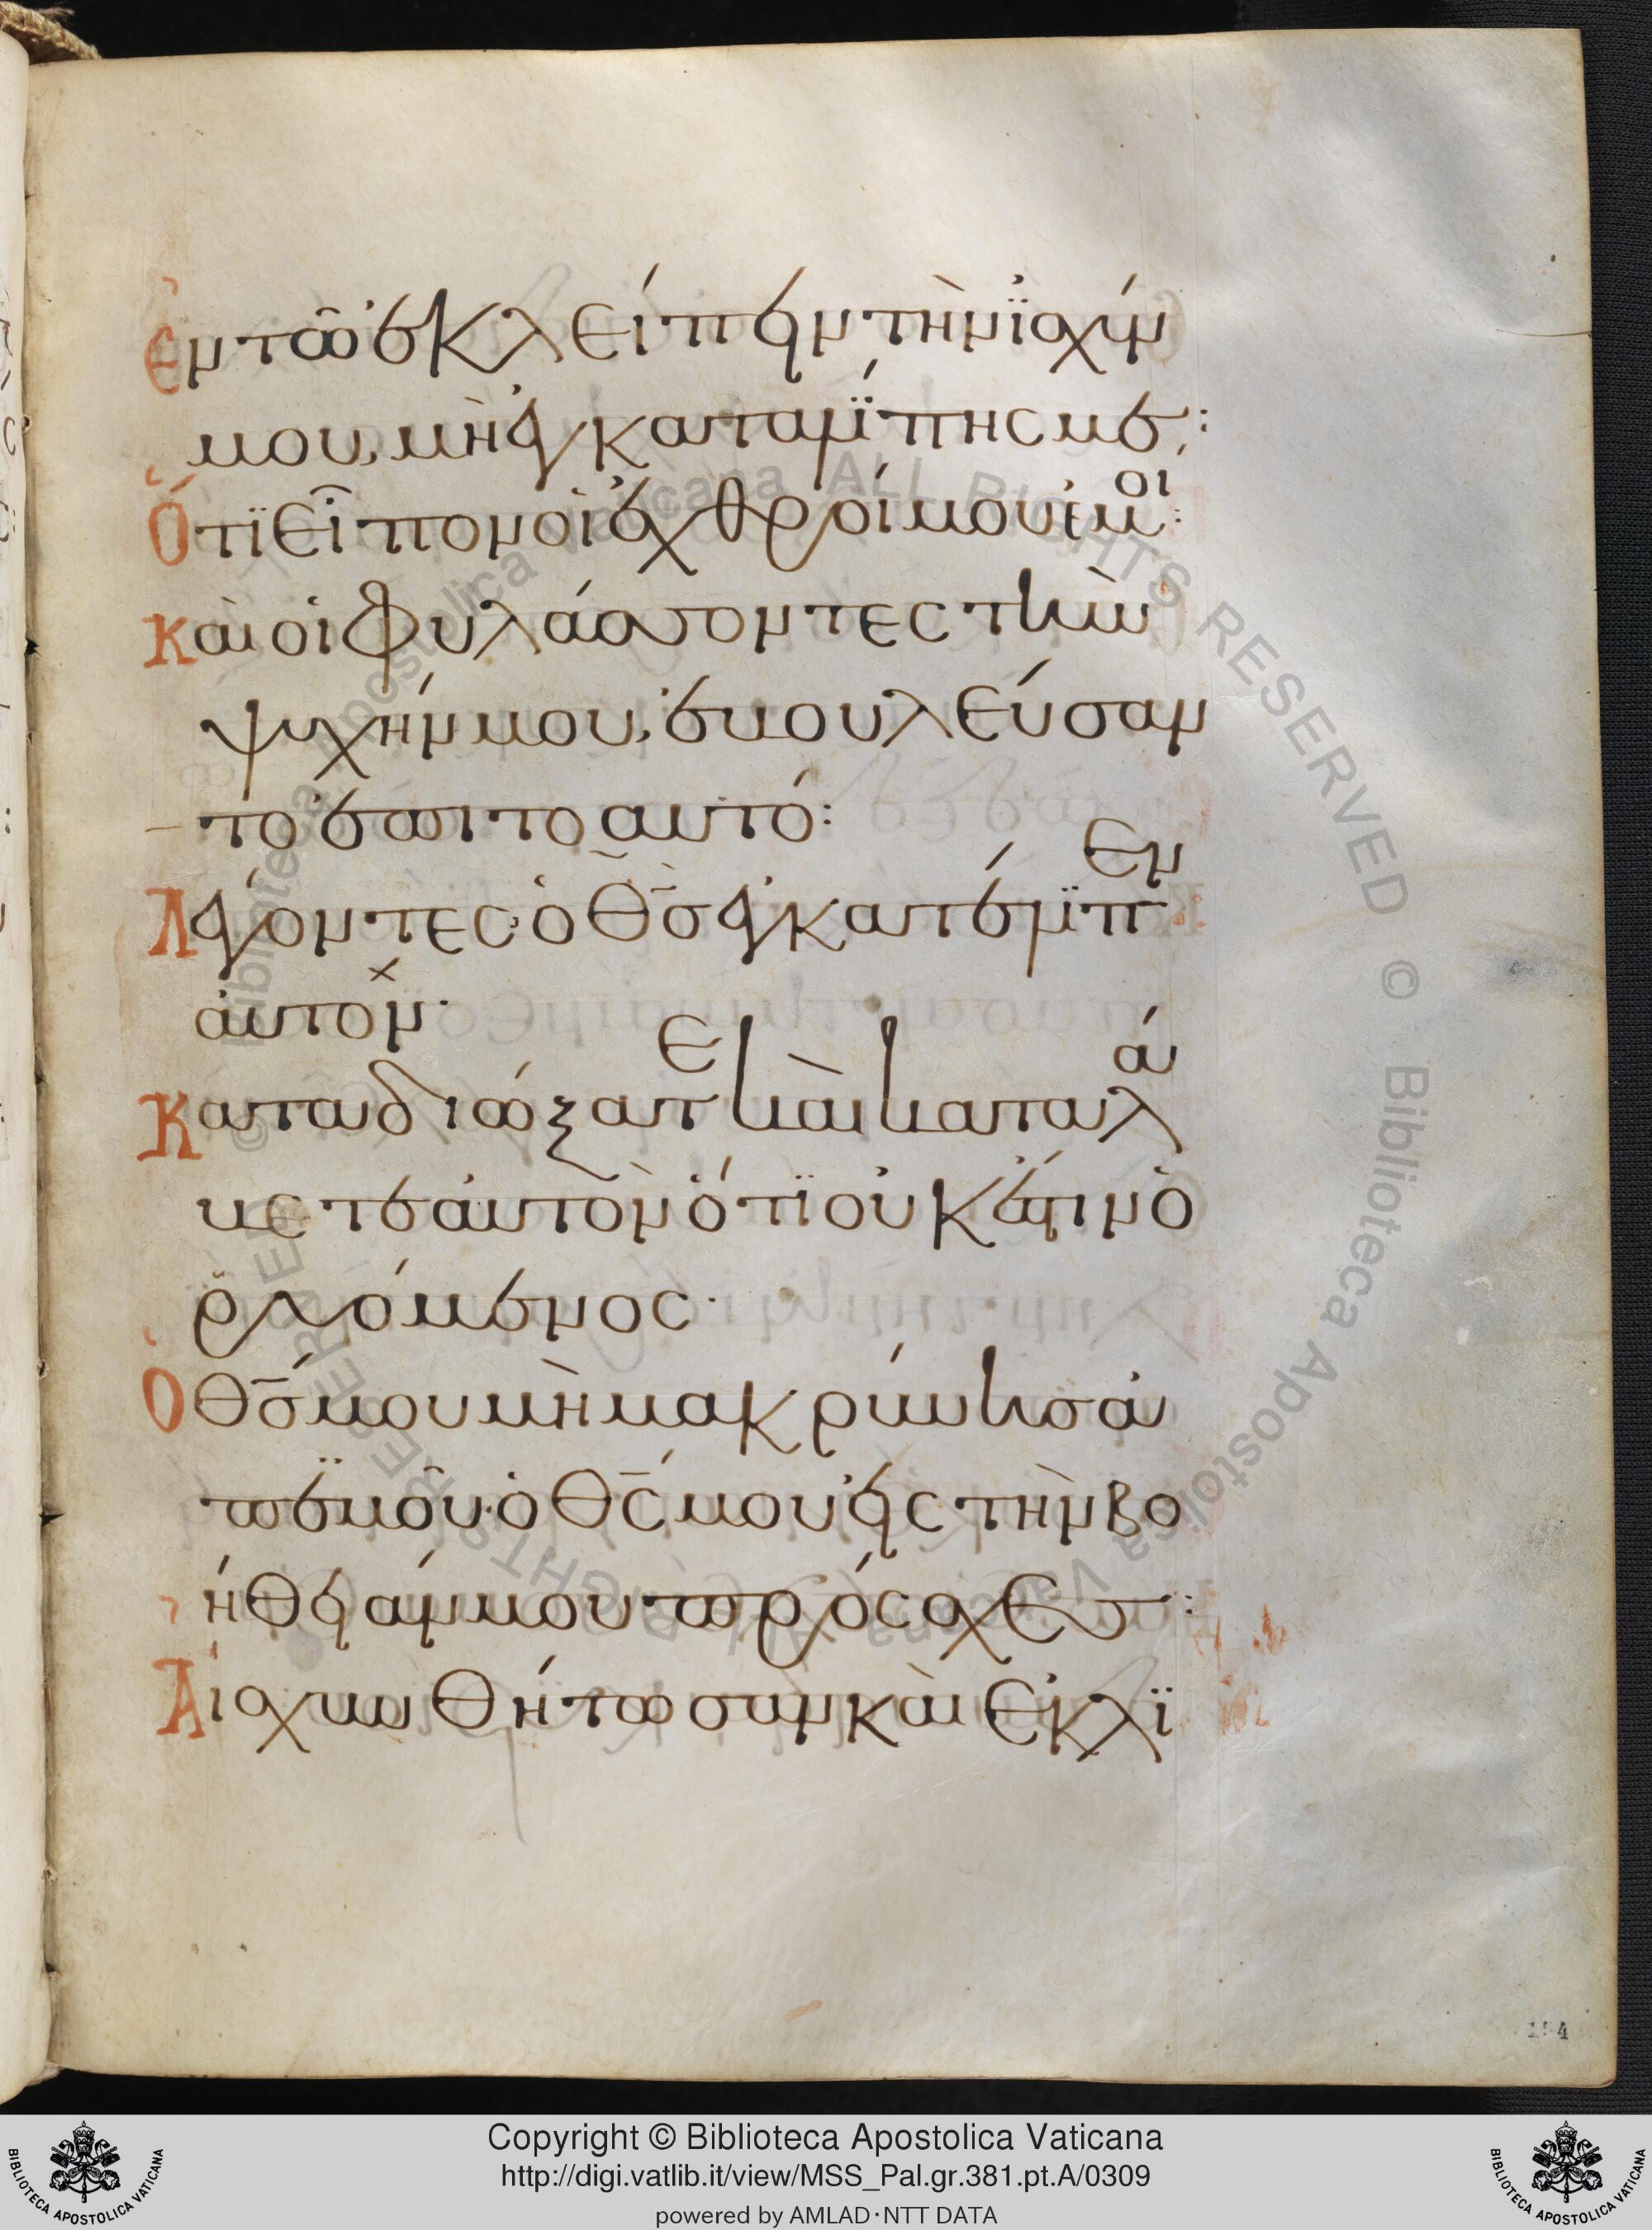 Ἐν τῶ ἐκλείπειν τὴν ἰσχύν
μου, μὴ ἐγκαταλίπης με:
Ὅτι εἶπον οἱ ἐχθροί μου ἐμοί:
καὶ οἱ φυλάσσοντες τὴν
ψυχήν μου, ἐβουλεύσαν
το ἐπιτοαυτό:
Λέγοντες· ὁ θ̅σ̅ ἐγκατέλιπεν
ἀυτον·
Καταδιώξατε καὶ καταλά
βετε ἀυτὸν ὅτι οὐκ ἔστιν ὁ
ῥυόμενος·
Ὁ θ̅σ̅ μου μὴ μακρύνης ἀ
π ἐμοῦ· ὁ θ̅ς̅ μου εἰς τὴν βο
ήθειάν μου πρόσχες:
Αἰσχυνθήτωσαν καὶ ἐκλι
154
Copyright © Biblioteca Apostolica Vaticana
http://digi.vatlib.it/view/MSS_Pal.gr.381.pt.A/0309
powered by AMLAD·NTT DATA
BIBLIOTECA APOSTOLICA VATICANA
BIBLIOTECA APOSTOLICA VATICANA
© Biblioteca Apostolica Vaticana ALL RIGHTS RESERVED © Biblioteca Apostolica Vaticana ALL RIGHTS RESERVED